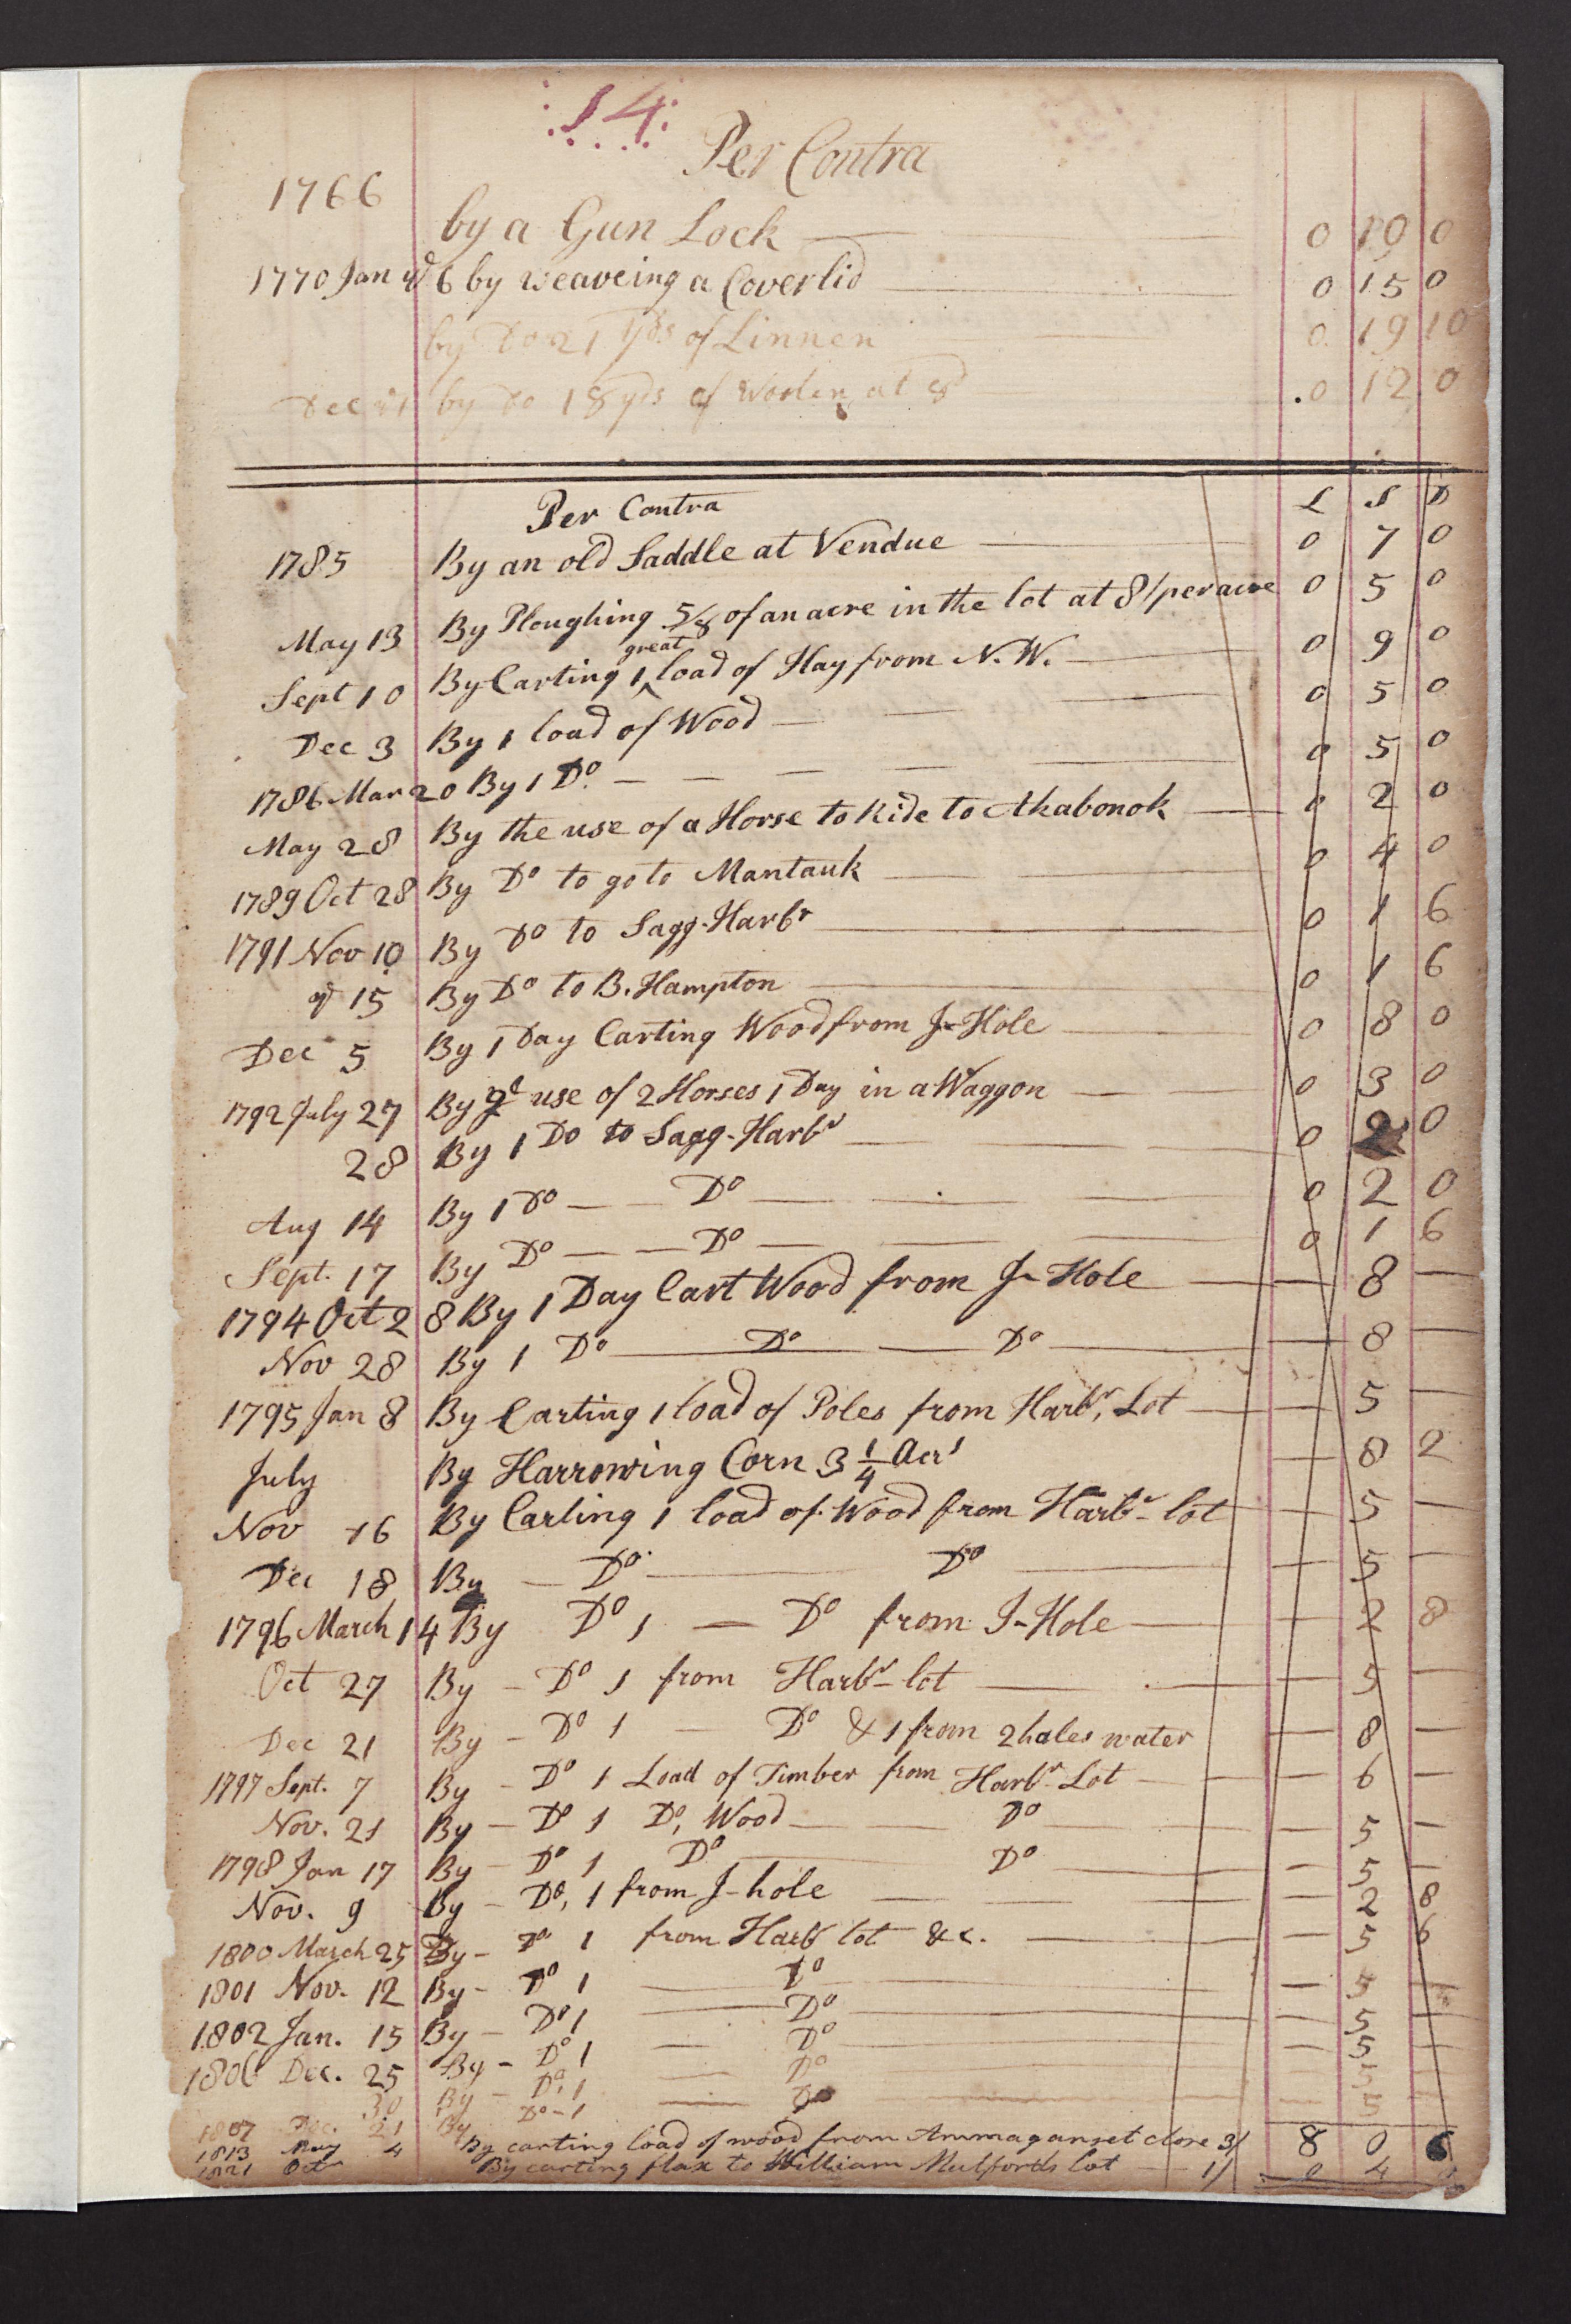 14
Per Contra
1766
by a Gun Lock 0 10 0
1770 Jan ye 6 by weaveing a Coverlid 0 15 0
by Do 21 yds of Linnen 0 19 10
Dec 21 by Do 18 yds of Woolen at 8d 0 12 0
Per Contra L S D
1785 By an old Saddle at Vendue 0 7 0
May 13 By Ploughing 5/8 of an acre in the lot at 8/ per acre 0 5 0
Sept 10 By Carting 1 great load of Hay from N. W. 0 9 0
Dec 3 By 1 load of Wood 0 5 0
1786 Mar 20 By 1 Do 0 5 0
May 28 By the use of a Horse to Ride to Akabonok 0 2 0
1789 Oct 28 By Do to go to Mantauk 0 4 0
1791 Nov 10 By Do to Sagg-Harbr 0 1 6
15 By Do to B. Hampton 0 1 6
Dec 5 By 1 Day Carting Wood from J-Hole 0 8 0
1792 July 27 By ye use of 2 Horses 1 Day in a Waggon 0 3 0
28 By 1 Do to Sagg-Harbr 0 2 0
Aug 14 By 1 Do Do 0 2 0
Sept. 17 By Do Do 0 1 6
1794 Oct 28 By 1 Day Cart Wood from J-Hole — 8 —
Nov 28 By 1 Do Do Do — 8 —
1795 Jan 8 By Carting 1 load of Poles from Harbr, Lot — 5 —
July By Harrowing Corn 3 1/4 Acrs — 8 2
Nov 16 By Carting 1 load of Wood from Harbr-lot — 5 —
Dec 18 By — Do Do — 5 —
1796 March 14 By Do 1 — Do from J-Hole — 2 8
Oct 27 By — Do 1 from Harbr-lot — 5 —
Dec 21 By — Do 1 — Do & 1 from 2 hales water — 8 —
1797 Sept. 7 By — Do 1 Load of Timber from Harbr-Lot — 6 —
Nov. 21 By — Do 1 Do, Wood Do — 5 —
1798 Jan 17 By — Do 1 Do Do — 5 —
Nov. 9 By — Do, 1 from J-hole — 2 8
1800 March 25 By — Do 1 from Harbr lot &c. — 5 6
1801 Nov. 12 By — Do 1 Do — 5 —
1802 Jan. 15 By — Do 1 Do — 5 —
1806 Dec. 25 By — Do 1 Do — 5 —
30 By — Do, 1 Do — 5 —
1807 Dec. 21 By Do — 1 Do — 5 —
1813 May 4 By carting load of wood from Ammagansset close 3/ 8 0 6
1821 Oct By carting flax to William Mulfords lot 1/ 0 4